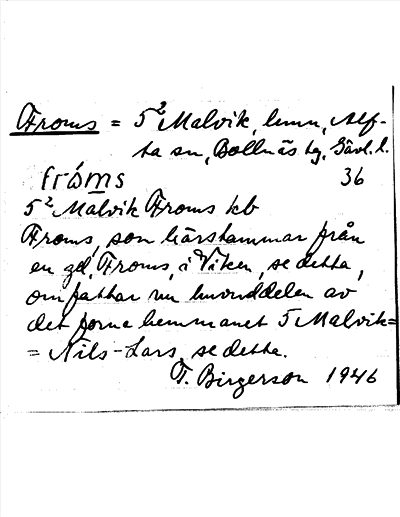 Froms = 5² Malvik, hmn, Alf-
ta sn, Bollnäs tg, Gävl. l.
fróms 36
5² Malvik Froms kb
Froms, som härstammar från
en gd, Froms, i Viken, se detta,
omfattar nu huvuddelen av
det forna hemmanet 5 Malvik=
= Nils-Lars, se detta.
T. Birgerson 1946